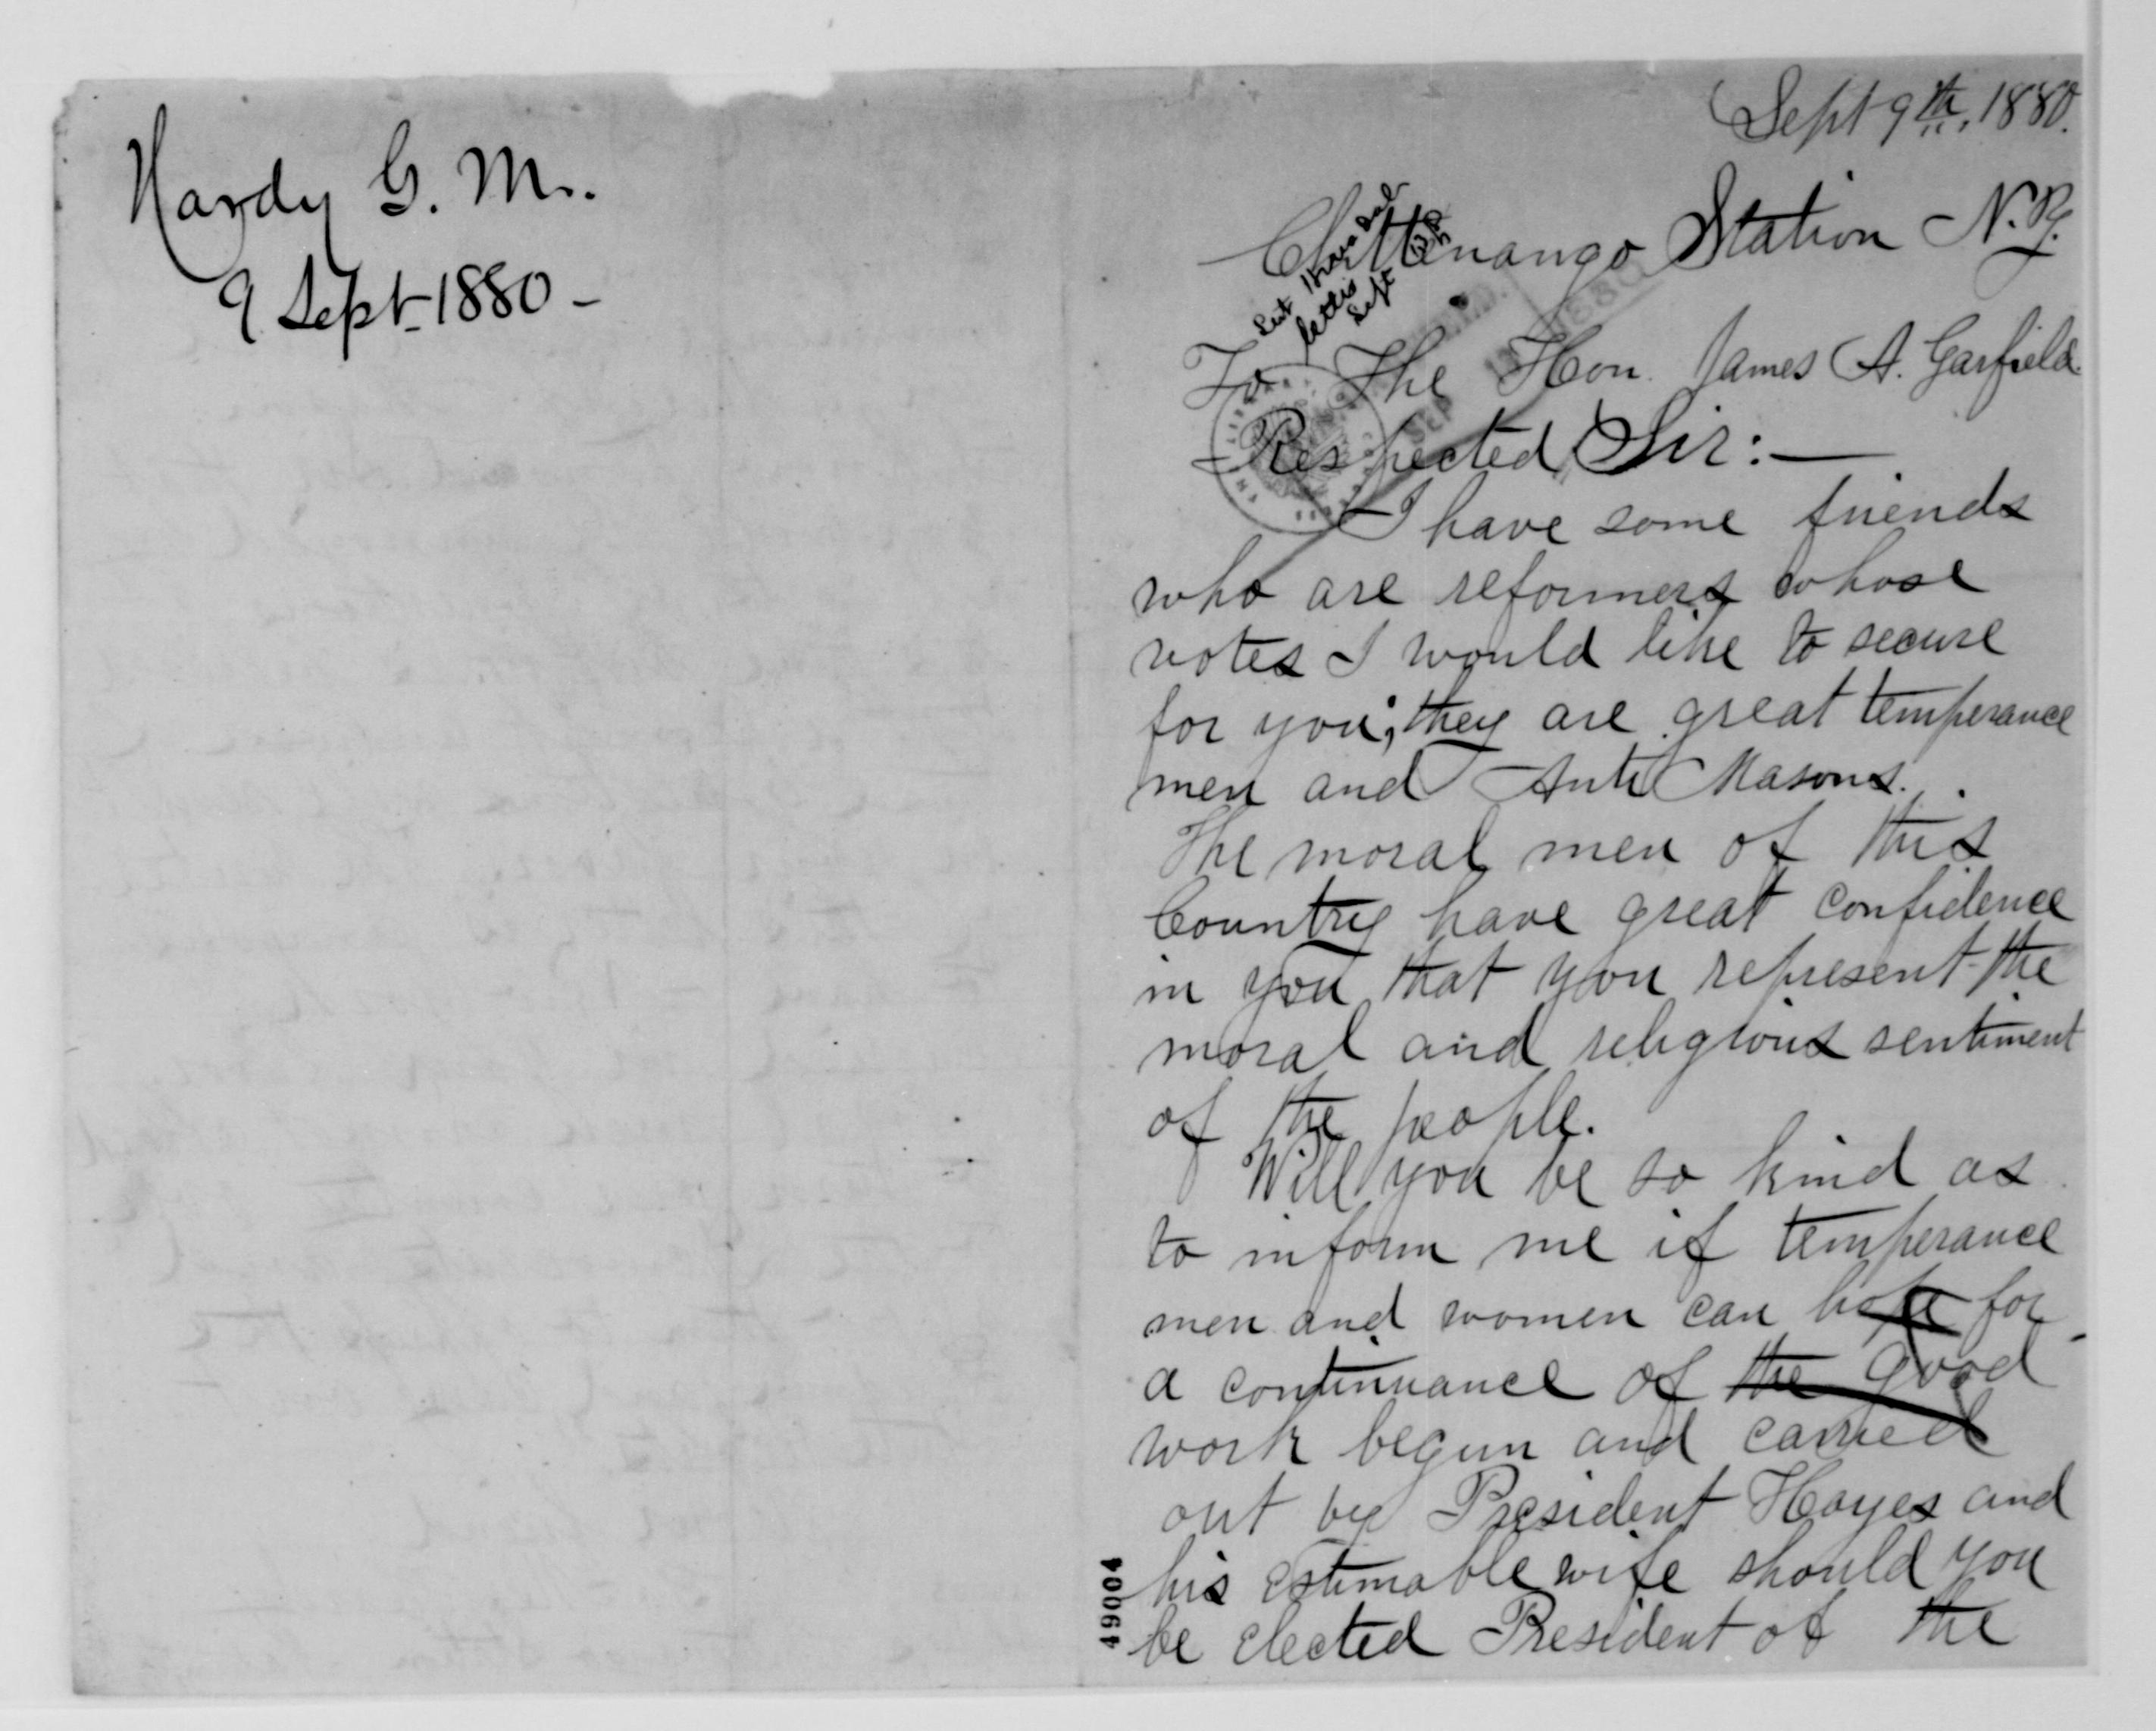 Hardy G. M.
9 Sept 1880 -
Sept 9th, 1880.
Chittenango Station N.Y.
letters
Sept
To The Hon. James A. Garfield.
Respected Sir: —
I have some friends
who are reformers whose
votes I would like to secure
for you; they are great temperance
men and Anti Masons.
The moral men of this
Country have great confidence
in you that you represent the
moral and religious sentiment
of the people.
Will you be so kind as
to inform me if temperance
men and women can hope for
a continuance of the good
work begun and carried
out by President Hayes and
his estimable wife should you
be elected President of the
49004